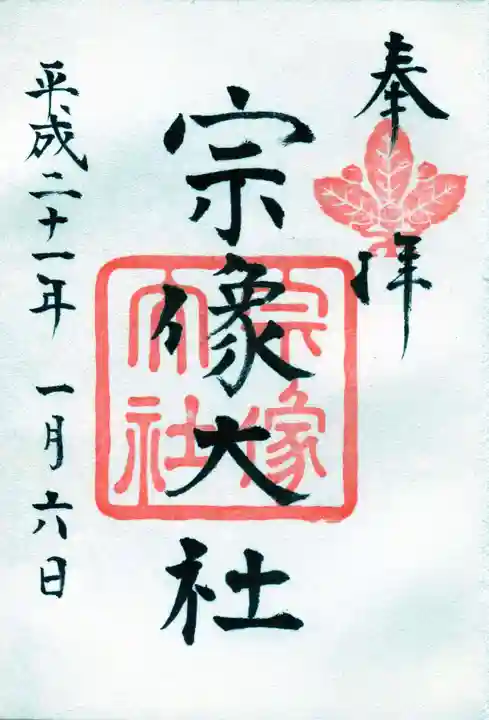 奉拝
宗像大社
宗像大社
平成二十一年一月六日